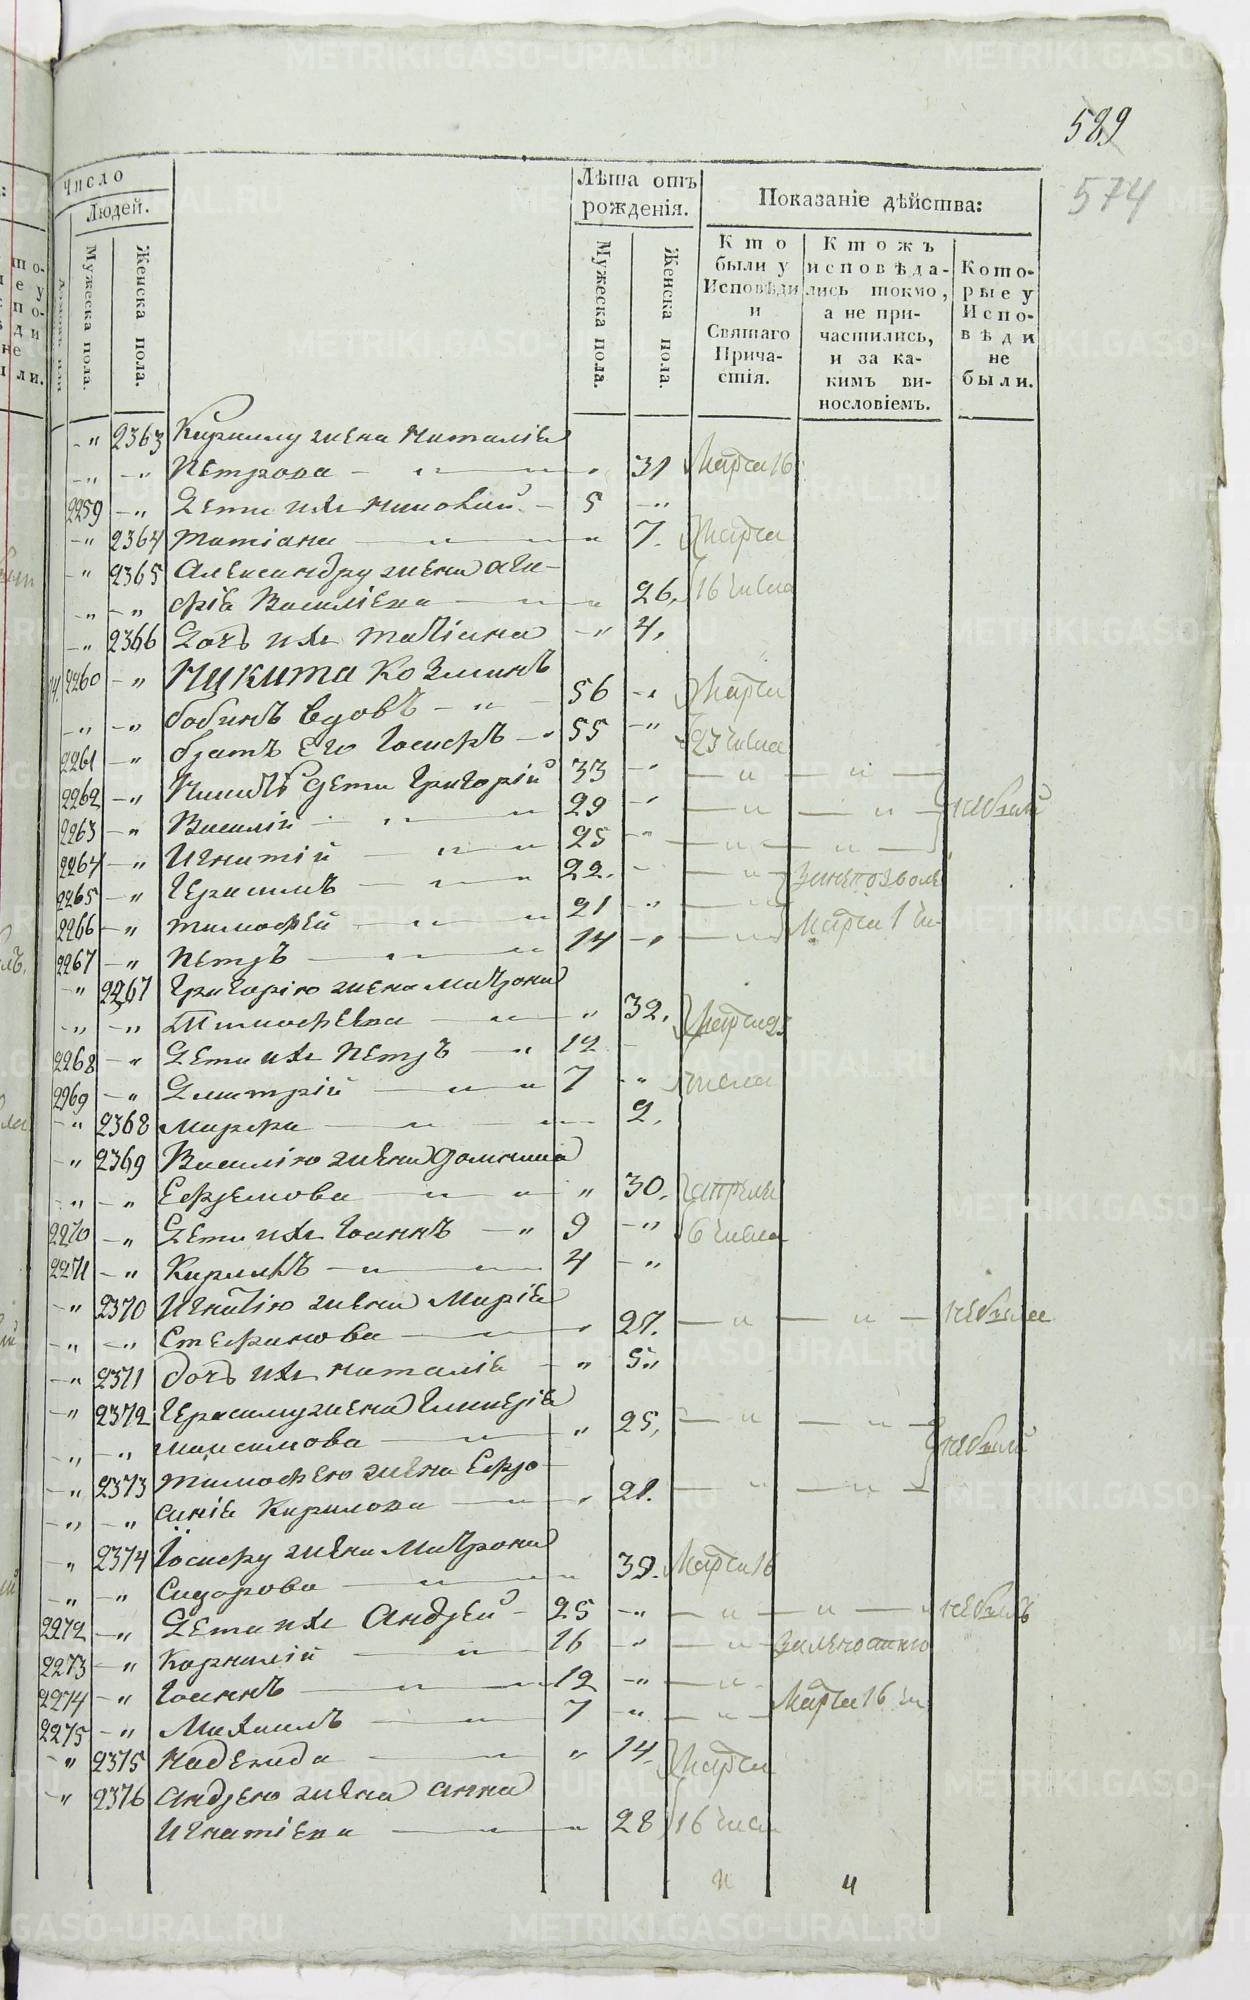 589
574
Число
Людей.
Мужеска пола.
Женска пола.
Лѣта отъ рожденія.
Мужеска пола.
Женска пола.
Показаніе дѣйства:
Кто были у Исповѣди и Святаго Причастія.
Ктожъ исповѣдались токмо, а не причастились, и за какимъ винословіемъ.
Которые у Исповѣди не были.
-" 2363 Кирилу жена Наталія
-" -" Петрова - " - " 31 Марта 16
2259 -" Дети ихъ Николай - 5 -"
-" 2364 Татіана - " - " 7. Марта
-" 2365 Александру жена
-" -" Василіева - " - " 26, 16 числа
-" 2366 Дочь ихъ Татіана -" 4,
2260 -" Никита Козминъ
-" -" Бабинъ вдовъ - " - 56 -" Марта
2261 -" братъ его Іосифъ - " 55 -" 23 числа
2262 -" Никиты дети Григорій 33 -" - " - " -
2263 -" Василій - " - " 29 -" - " - " - небыли
2264 -" Игнатій - " - " 25 -" - " - " -
2265 -" Герасимъ - " - " 22. - - " -
2266 -" Тимофей - " - " 21 -" - " - Марта 1 чи
2267 -" Петръ - " - " 14 -" - " -
-" 2267 Григорію жена Матрона
-" -" Тимофеева - " - " 32, Марта 25
2268 -" Дети ихъ Петръ - " 12 -
2269 -" Дмитрій - " - " 7 -" числа
-" 2368 Марфа - " - " 2,
-" 2369 Василію жена Домника
-" -" Ефремова - " - " 30, апреля
2270 -" Дети ихъ Іоаннъ - " 9 -" 6 числа
2271 -" Кирилъ - " - 4 -"
-" 2370 Игнатію жена Марія
-" -" Стефанова - " - " 27. - " - " - небыла
-" 2371 дочь ихъ Наталія - " 5"
-" 2372 Герасиму жена Гликерія
-" -" Максимова - " - " 25, - " - " - небыли
-" 2373 Тимофею жена Ефро-
-" -" синія Кирилова - " - " 21. - " - " -
" 2374 Іосифу жена Матрона
-" -" Сидорова - " - " 39. Марта 16
2272 -" Дети ихъ Андрей - 25 -" - " - " - небылъ
2273 -" Корнилій - " - 16 -" - " -
2274 -" Іоаннъ - " - " 12 -" - " - Марта 16 чи
2275 -" Михаилъ - " - 7 -" - " -
-" 2375 Надежда - " - " 14. Марта
-" 2376 Андрею жена Анна
Игнатіева - " - " 28 16 числа
" "
METRIKI.GASO-URAL.RU